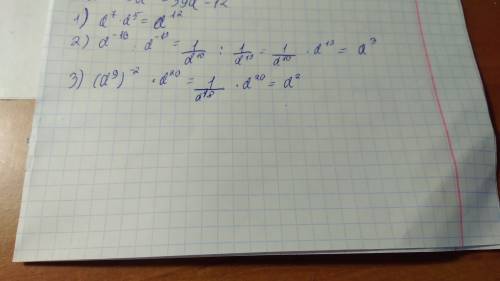 1) a⁷ · a⁵ = a¹²
2) a⁻¹⁰ : a⁻¹³ = 1/a¹⁰ : 1/a¹³ = 1/a¹⁰ · a¹³ = a³
3) (a⁹)⁻² · a²⁰ = 1/a¹⁸ · a²⁰ = a²